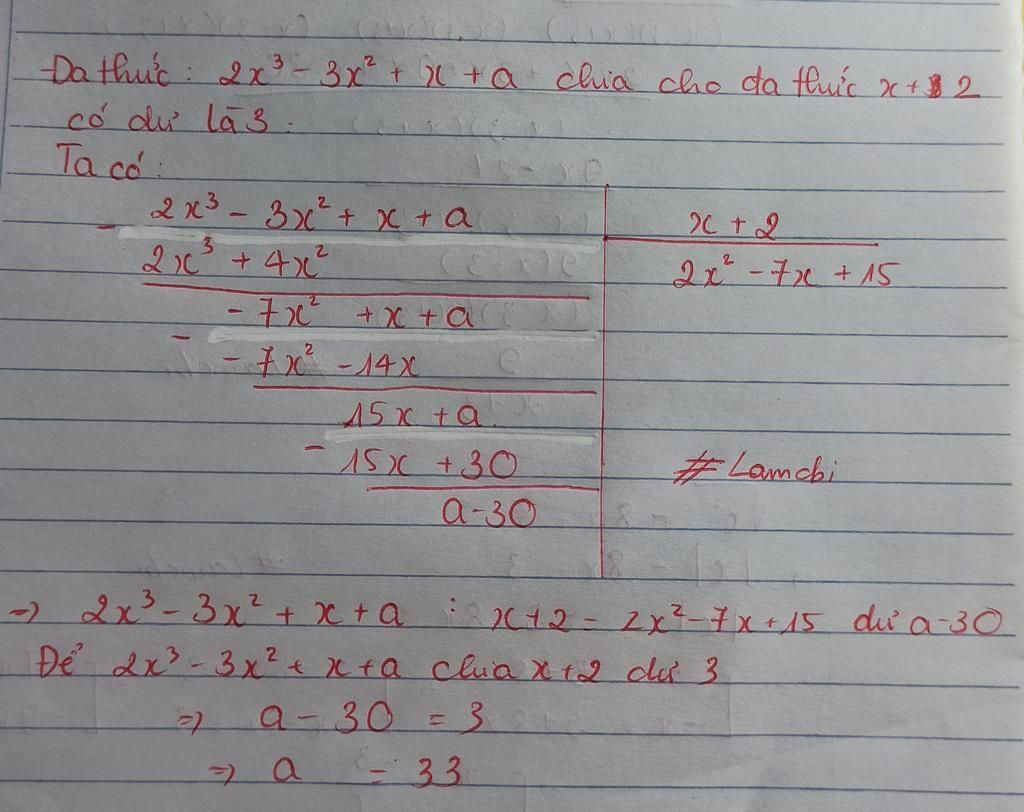 Đa thức: 2x³ - 3x² + x + a chia cho đa thức x + 2
có dư là 3.
Ta có:
2x³ - 3x² + x + a
x + 2
-
2x³ + 4x²
2x² - 7x + 15
- 7x² + x + a
-
- 7x² - 14x
15x + a
-
15x + 30
# Lamchi
a - 30
=> 2x³ - 3x² + x + a : x + 2 = 2x² - 7x + 15 dư a - 30
Để 2x³ - 3x² + x + a chia x + 2 dư 3
=> a - 30 = 3
=> a = 33